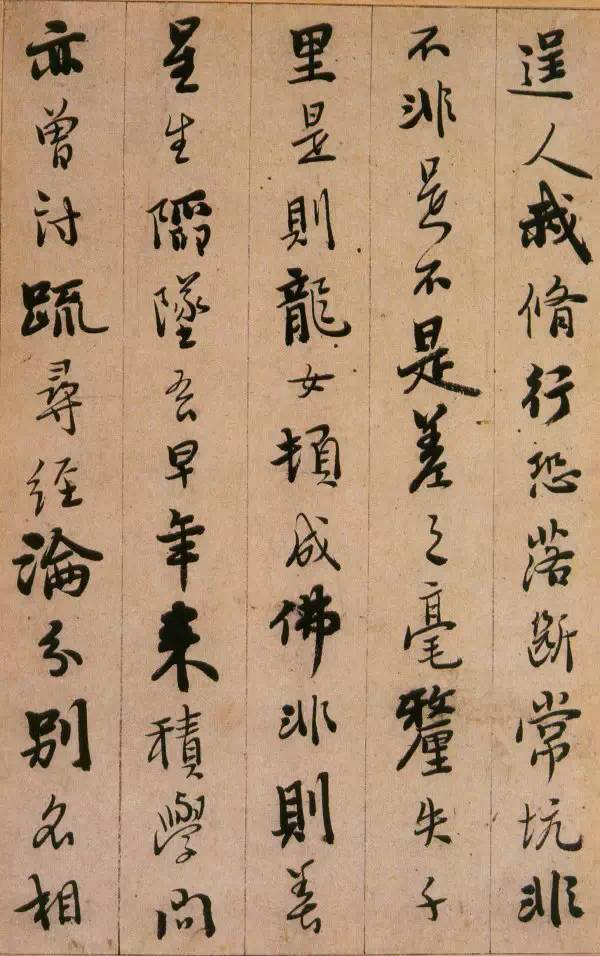 逞人我脩行恐落斷常坑非
不非是不是差之毫釐失千
里是則龍女頓成佛非則善
星生陷墜吾早年来積學問
亦曾討疏尋經論分别名相